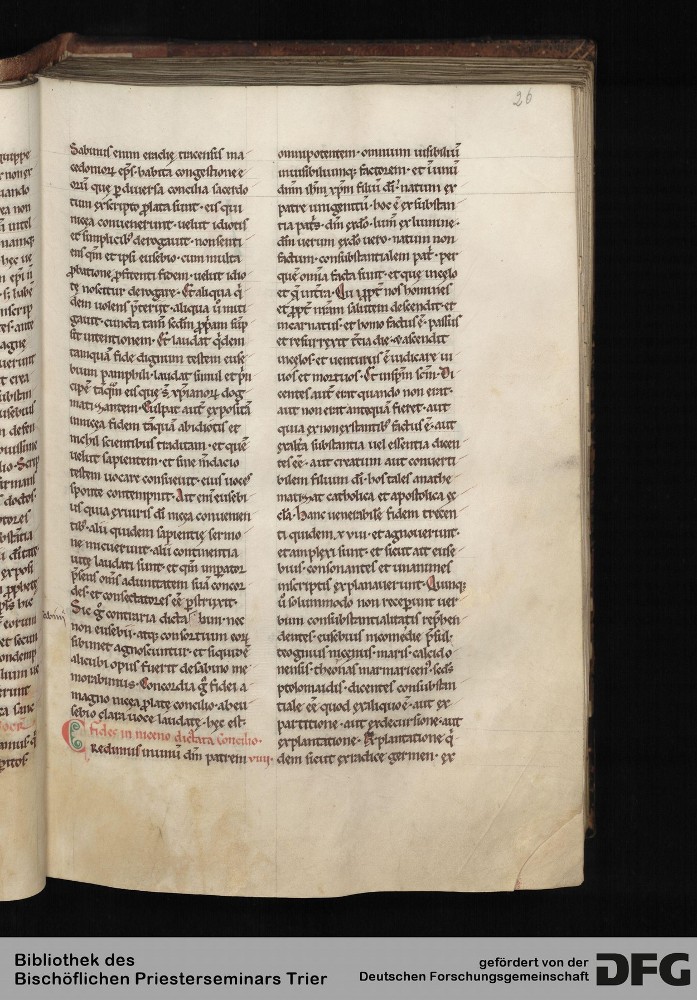 26
Sabinus enim eraclie tricensis ma
cedonioꝝ ep̄s habita congestione e
oꝝ que ꝑ diuersa concilia sacerdo
tum ex scripto ꝓlata sunt · eis qui
nicea conuenerunt · uelut idiotis
et simplicib; derogauit · non senti
ens qm̄ et ipsi eusebio · cum multa
ꝓbatione ꝓfitenti fidem · uelut idio
te noscitur derogare · Et aliqua qͥ
dem uolens p̄teriit · aliqua ū muti
gauit
sit intentionem · Et laudat qͥdem
tamquā fide dignum testem euse
bium pamphili · laudat simul et p̄n
cipē
mati
nicea fidem tāquā ab idiotis et
nichil scientibus traditam · et quē
uelut sapientem · et sine m̄dacio
testem uocare consueuit · eius uoces
sponte contempnit · Ait eni eusebi
us quia ex uiris dī nicea conuenien
tib; alii quidem sapientie sermo
ne micuerunt · alii continentia
uite laudati sunt · et qm̄ imꝑator
p̄sens om̄s ad unitatem suā concor
des · et consectatores eē ꝑstruxit ·
Sic gͦ contraria dicta bun · nec
non eusebii · atq; consortium eoꝝ
sibimet agnoscuntur · et siquidē
alicubi opus fuerit de sabino me
morabimus · Concordia gͦ fidei a
magno nicea ꝓlate concilio · ab eu
sebio clara uoce laudate · hec est ·
fides in niceno dictata concilio ·
Credimus in unū dm̄ patrem viiii ·
omnipotentem · omnium uisibiliū
inuisibiliumq; factorem · et in unū
dnm̄ ihm̄ xpm̄ filiū dī · natum ex
patre unigenitū · hoc ē ex substan
tia patͥs · dm̄ ex dō · lum̄ ex lumine ·
dm̄ uerum ex dō uero · natum non
factum · consubstantialem patͥ · per
quē omīa facta sunt · et que in celo
et que in terra · Qui ꝓpt nos homines
et ꝓpt nr̄am salutem descendit · et
incarnatus · et homo factus ē · passus
et resurrexit tͨia die · et ascendit
in celos · et uenturus ē iudicare ui
uos et mortuos · Et in spm̄ scm̄ · Di
centes aut̄ erat quando non erat ·
aut non erat antequā fieret · aut
quia ex non exstantib; factus ē · aut
ex altera substantia uel essentia dicen
tes eē · aut creatum aut conuerti
bilem filium dī · hos tales anathe
matizat catholica et apostolica ec
cl̄a · hanc uenerabilē fidem trecen
ti quidem · x · viii · et agnouerunt ·
et amplexi sunt · et sicut ait euse
bius · consonantes et unanimes
in scriptis explanauerunt · Quinq;
ū solummodo non receperunt uer
bum consubstantialitatis rep̄hen
dentes · eusebius nicomedie p̄sul ·
teognius nicenus · maris · calcido
nensis · theonas marmaricen̄ · sc̄ds
ptolomaidis · dicentes consubstan
tiale eē quod ex aliquo ē · aut ex
partitione · aut ex decursione · aut
explantatione · Explantatione qͥ
dem sicut ex radice germen · ex
Bibliothek des
Bischöflichen Priesterseminars Trier
gefördert von der
Deutschen Forschungsgemeinschaft
DFG